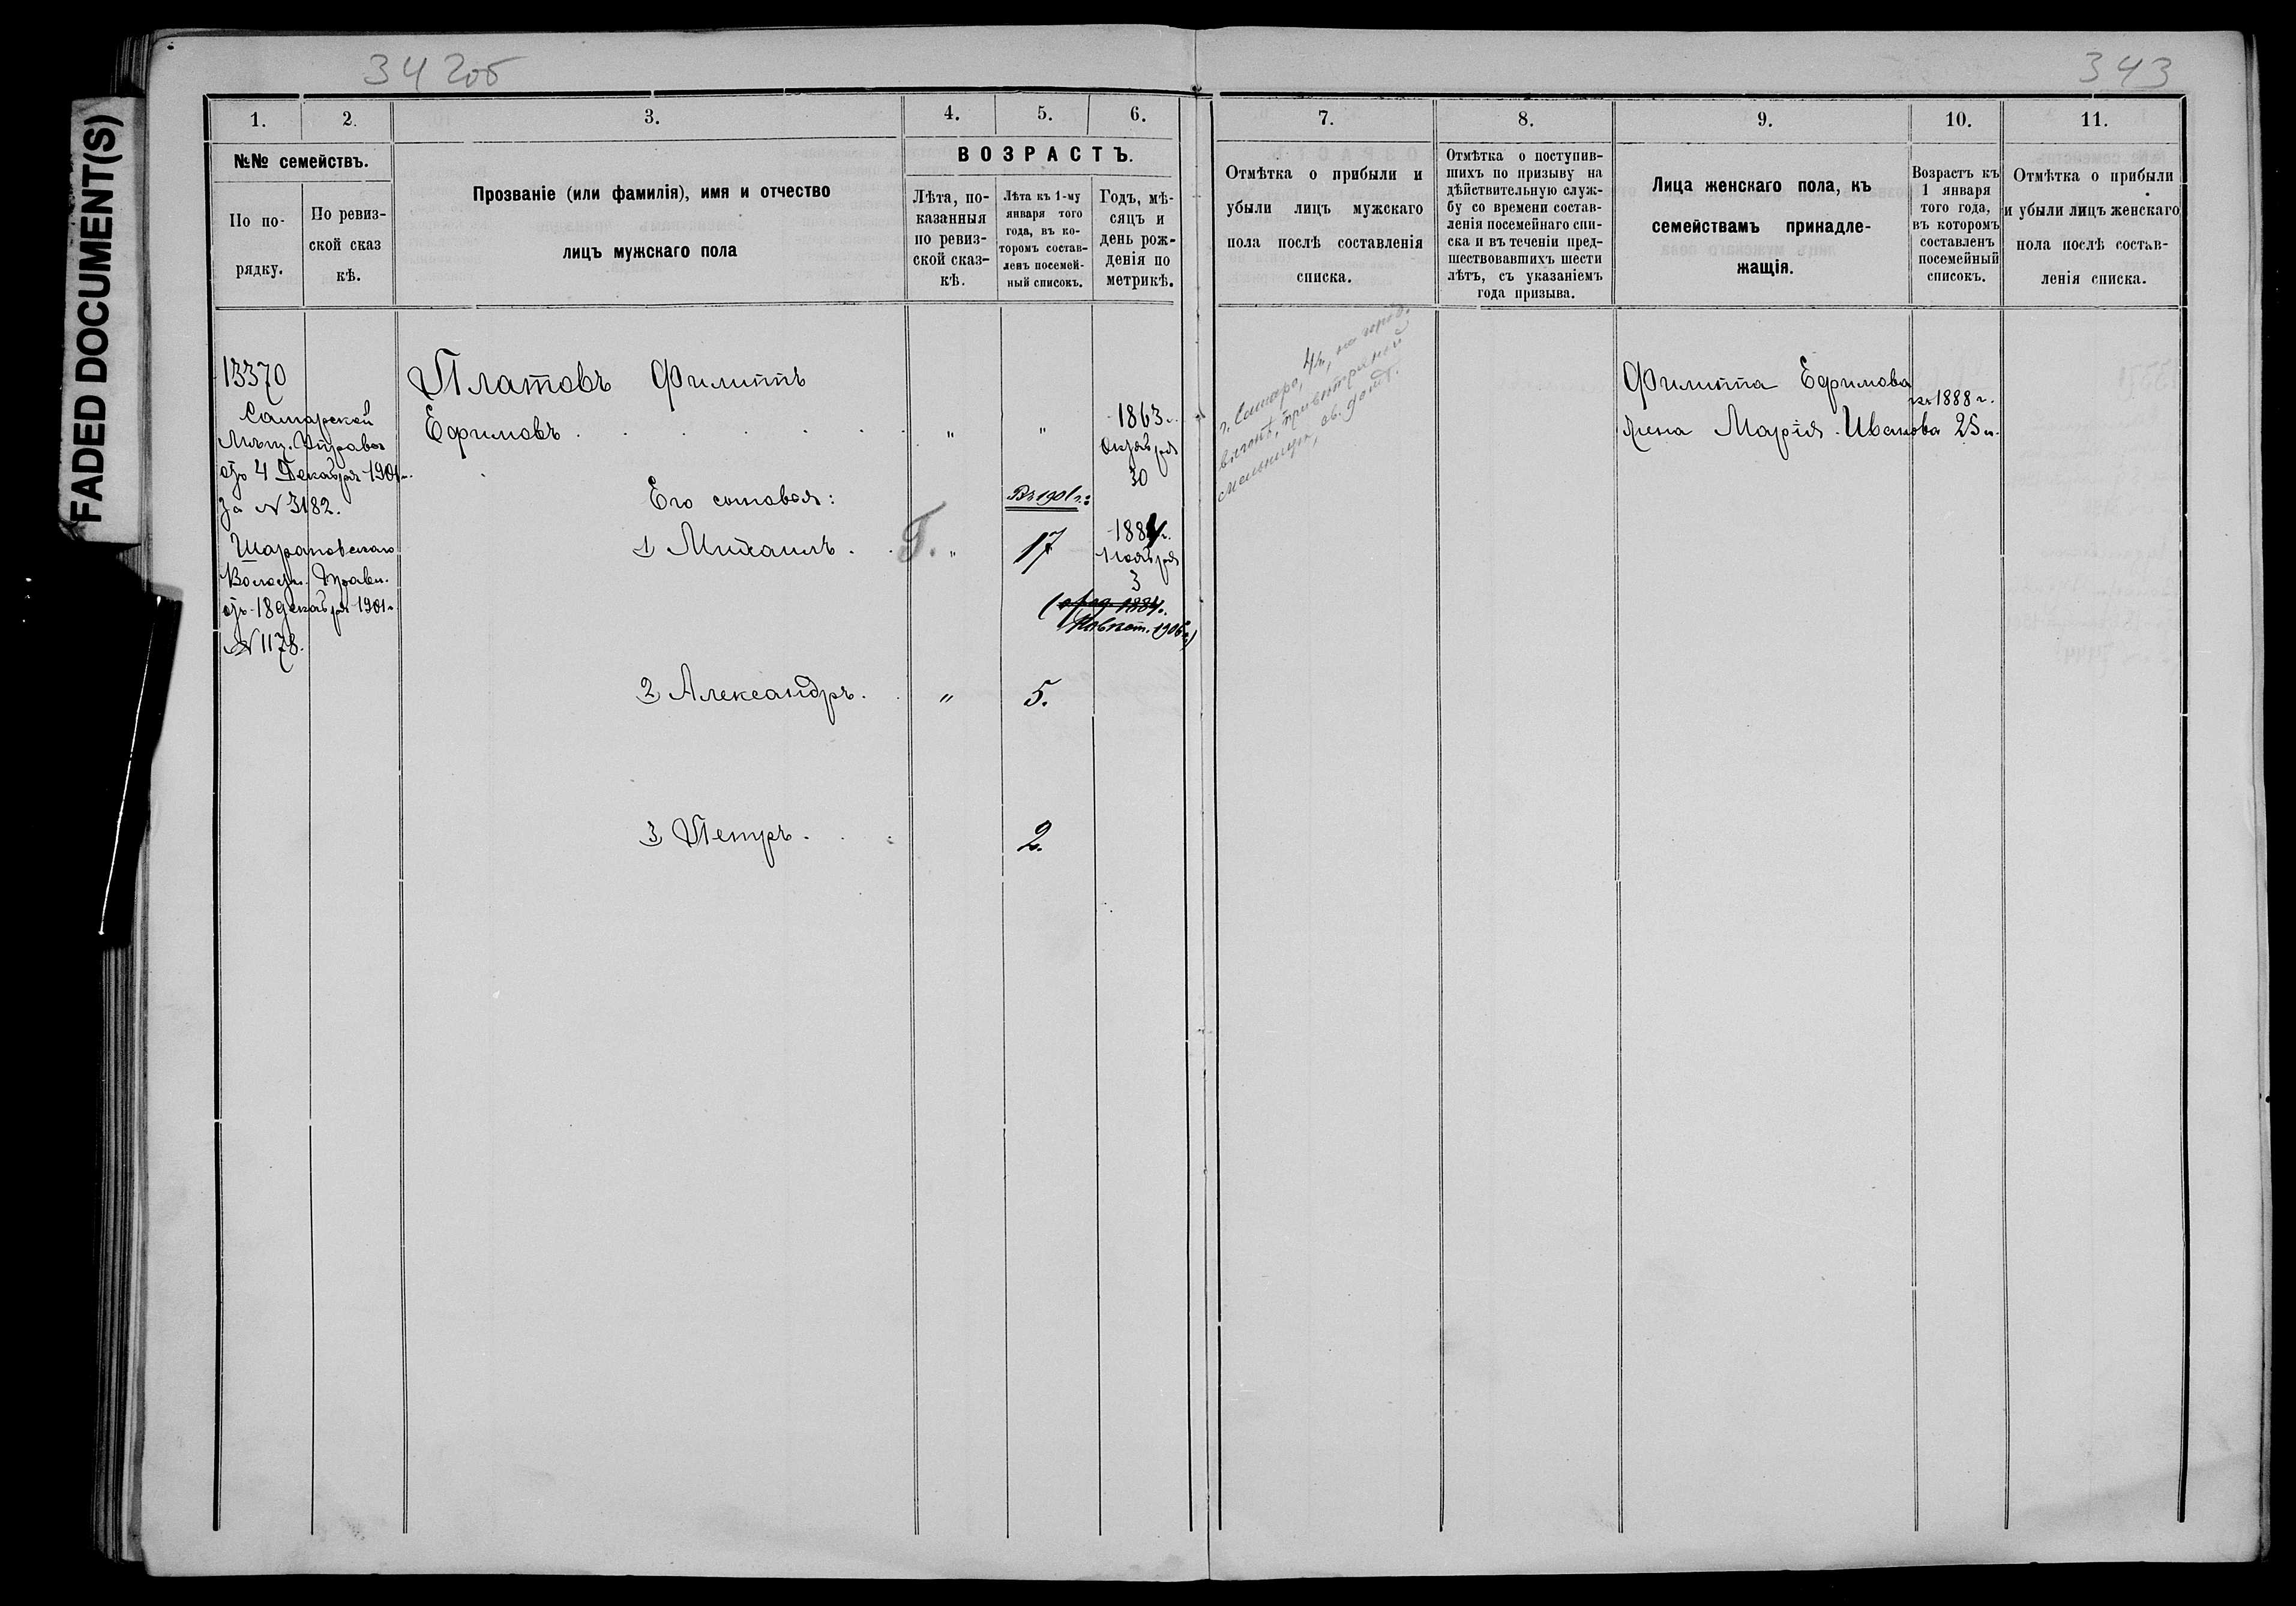 FADED DOCUMENT(S)
342об
343
1.
2.
3.
4.
5.
6.
7.
8.
9.
10.
11.
№№ семействъ.
По по-
рядку.
По ревиз-
ской сказ
кѣ.
Прозваніе (или фамилія), имя и отчество
лицъ мужскаго пола
ВОЗРАСТЪ.
Лѣта, по-
казанныя
по ревиз-
ской сказ-
кѣ.
Лѣта къ 1-му
января того
года, въ ко-
торомъ состав-
ленъ посемей-
ный списокъ.
Годъ, мѣ-
сяцъ и
день рож-
денія по
метрикѣ.
Отмѣтка о прибыли и
убыли лицъ мужскаго
пола послѣ составленія
списка.
Отмѣтка о поступив-
шихъ по призыву на
дѣйствительную служ-
бу со времени состав-
ленія посемейнаго спи-
ска и въ теченіи пред-
шествовавшихъ шести
лѣтъ, съ указаніемъ
года призыва.
Лица женскаго пола, къ
семействамъ принадле-
жащія.
Возрастъ къ
1 января
того года,
въ которомъ
составленъ
посемейный
списокъ.
Отмѣтка о прибыли
и убыли лицъ женскаго
пола послѣ состав-
ленія списка.
13370
Самарской
Мѣщ. Управы
отъ 4 Декабря 1901 г.
за № 3182.
Шараповскаго
Волост. Правл.
отъ 18 декабря 1901 г.
№ 1178.
Платовъ Филиппъ
Ефимовъ . . . . . . " "
1863 г.
Октября
30
Его сыновья:
Въ 1901 г.:
1 Михаилъ . . Г. " 17
1884 г.
Ноября
3
1884 г.
1906 г.)
2 Александръ. . " 5.
3 Петръ . . . 2.
г. Самара, 4 ч., на город.
выгонѣ,
мельницы, св. домъ.
Филиппа Ефимова
жена Марія Иванова
въ 1888 г.
25 л.